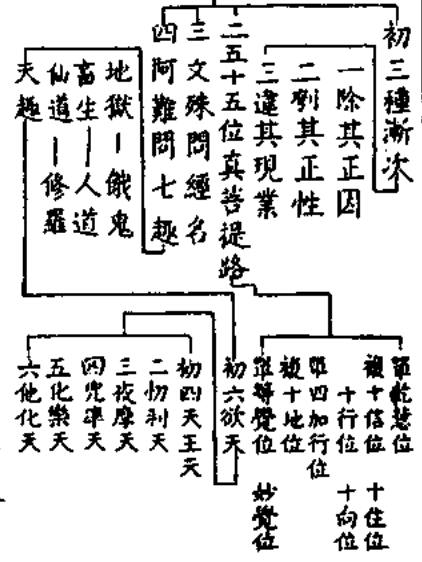 初三種漸次
一除其正因
二刳其正性
三違其現業
二五十五位真菩提路
三文殊問經名
四阿難問七趣
地獄－餓鬼
畜生－人道
仙道－修羅
天趣
單乾慧位
複十信位 十住位
十行位 十向位
單四加行位
複十地位
單等覺位 妙覺位
初六欲天
初四天王天
二忉利天
三夜摩天
四兜率天
五化樂天
六他化天